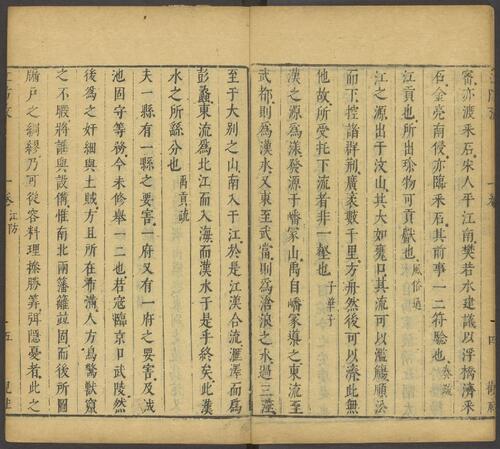 審亦渡釆石宋人平江南樊若水建議以浮橋濟釆
石金亮南侵亦臨釆石其前事一二符驗也
江貢也所出珍物可貢獻也風俗通
江之源出于汶山其大如甕口其流可以濫觴順㳂
而下控諸群荊廣袤數千里方舟然後可以濟此無
他故所受托下流者非一壑也子華子
漢之源爲漾發源于嶓冢山禹自嶓冢導之東流至
武都則爲漢水又東至武當則爲滄浪之水過三澨
至于大别之山南入于江於是江漢合流滙澤而爲
彭蠡東流爲北江而入海而漢水于是乎終矣此漢
水之所繇分也禹貢疏
夫一縣有一縣之要害一府又有一府之要害及戌
池固守等務今未修舉一二也若寇臨京口武陵然
後爲之奸細與土賊方且所在布滿人方爲驚獸竄
之不暇將誰與設備惟南北兩藩籬竝固而後所圖
牖戸之綢繆乃可從容料理操勝筭弭隱憂者此之
卷
江防
十五
十四